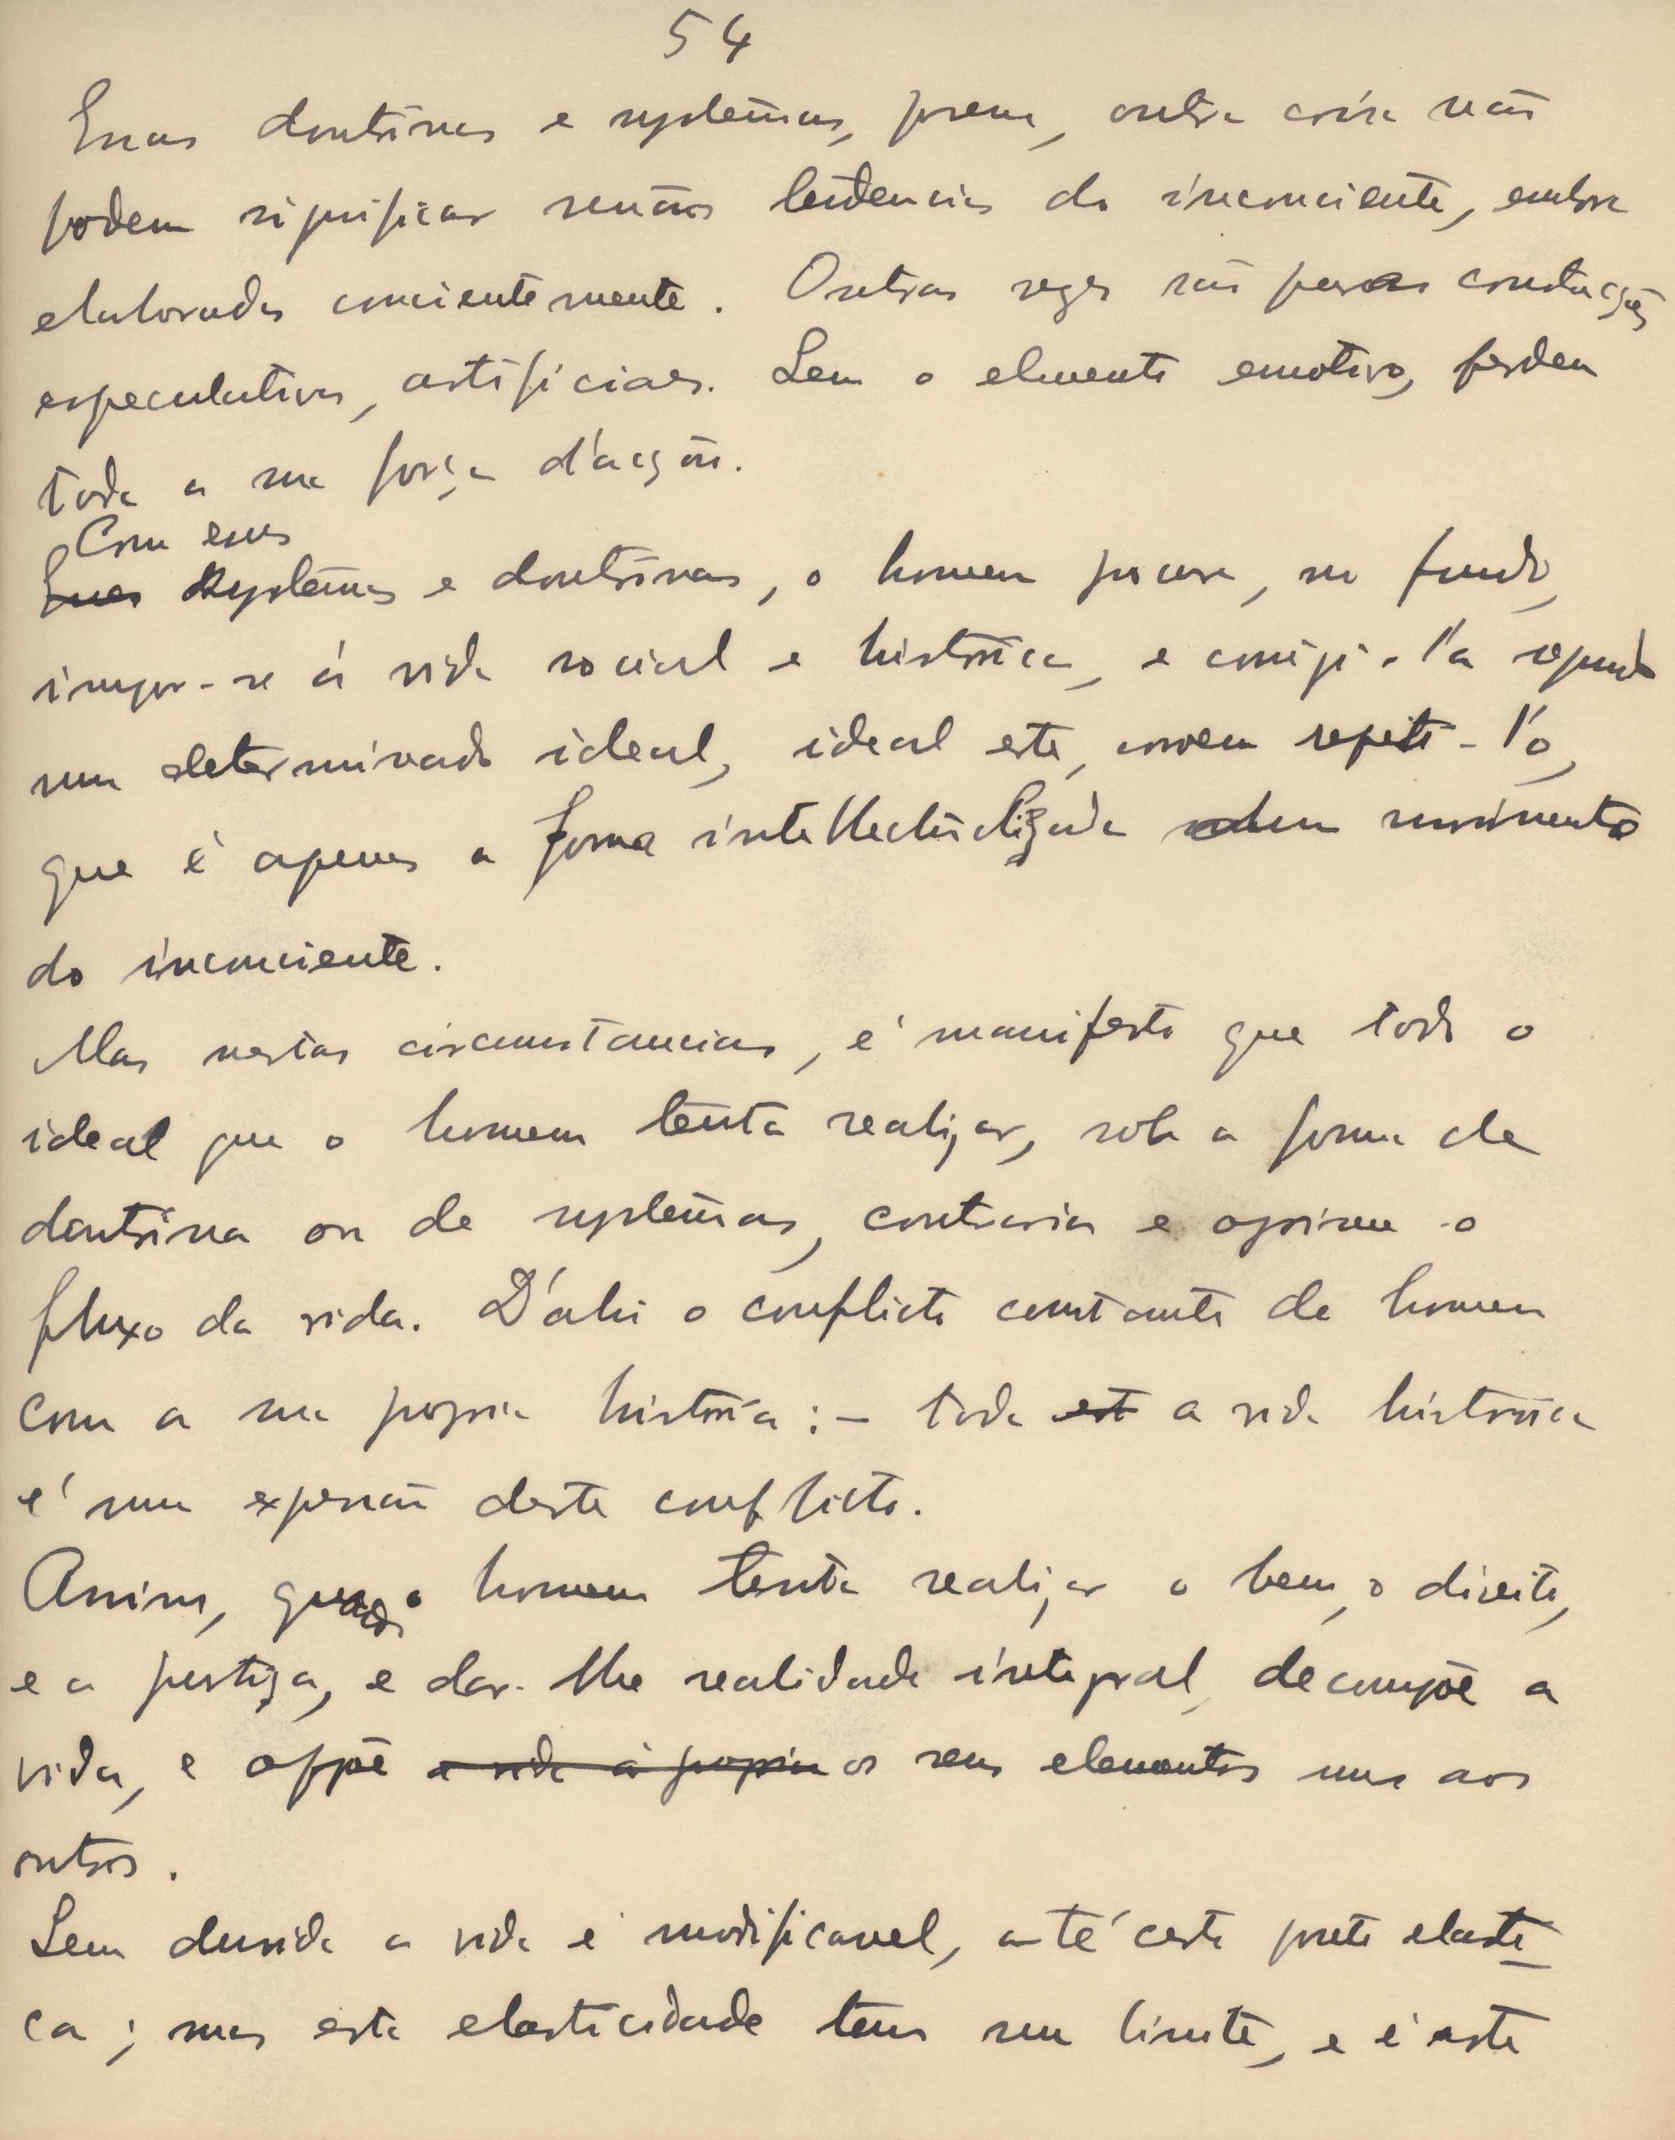 54
Essas doutrinas e systemas, porem, outra coisa não
podem significar senão tendencias do inconciente, embora
elaboradas concientemente. Outras vezes são puras construcções
especulativas, artificiaes. Sem o elemento emotivo, perdem
toda a sua força d'acção.
Com esses
Esses systemas e doutrinas, o homem procura, no fundo,
impor-se á vida social e historica, e corrigi-l'a segundo
um determinado ideal, ideal este, convem repeti-l'o,
que é apenas a forma intellectualizada dum movimento
do inconciente.
Mas nestas circumstancias, é manifesto que todo o
ideal que o homem tenta realizar, sob a forma de
doutrina ou de systemas, contraria e opprime o
fluxo da vida. D'ahi o conflicto constante do homem
com a sua propria historia: – toda est a vida historica
é uma expressão deste conflicto.
Assim, quando o homem tenta realizar o bem, o direito,
e a justiça, e dar-lhe realidade integral, decompõe a
vida, e oppõe a vida á propria os seus elementos uns aos
outros.
Sem duvida a vida é modificavel, até certo ponto elasti-
ca; mas esta elasticidade tem um limite, e é este